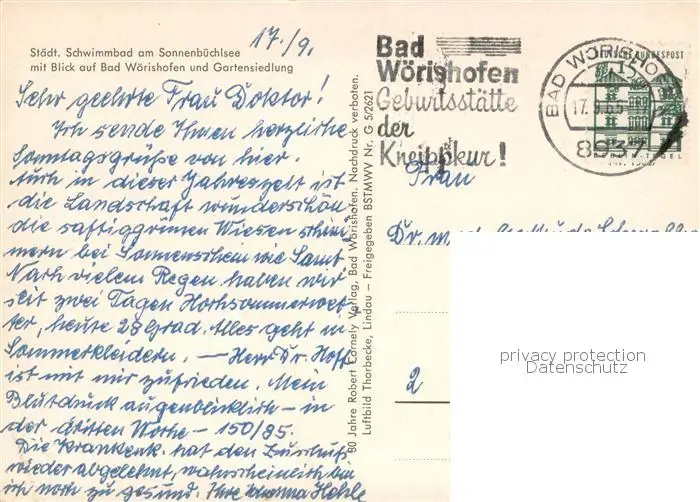 Städt. Schwimmbad am Sonnenbüchlsee
mit Blick auf Bad Wörishofen und Gartensiedlung
17./9.
Sehr geehrte Frau Doktor!
Ich sende Ihnen herzliche
Sonntagsgrüße von hier.
Auch in dieser Jahreszeit ist
die Landschaft wunderschön
die saftiggrünen Wiesen schim
mern bei Sonnenschein wie Samt
Nach vielem Regen haben wir
seit zwei Tagen Hochsommerwet-
ter, heute 28 Grad. Alles geht in
Sommerkleidern. – Herr Dr. Hoff
ist mit mir zufrieden. Mein
Blutdruck augenblicklich – in
der dritten Woche – 150/85.
Die Krankenk. hat den Zuschuß
wieder abgelehnt, wahrscheinlich bin
ich noch zu gesund. Ihre Hehle
80 Jahre Robert Cornely Verlag, Bad Wörishofen. Nachdruck verboten.
Luftbild Thorbecke, Lindau – Freigegeben BSTMWV Nr. G 5/2621
Bad
Wörishofen
Geburtsstätte
der
Kneippkur!
BAD WÖRISHO
17.9.65
8937
DEUTSCHE BUNDESPOST
15
TEGEL
Frau
Dr. med.
2
privacy protection
Datenschutz